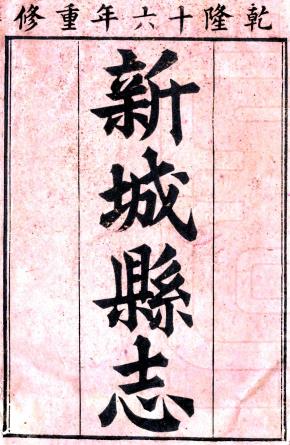 乾隆十六年重修
新城縣志